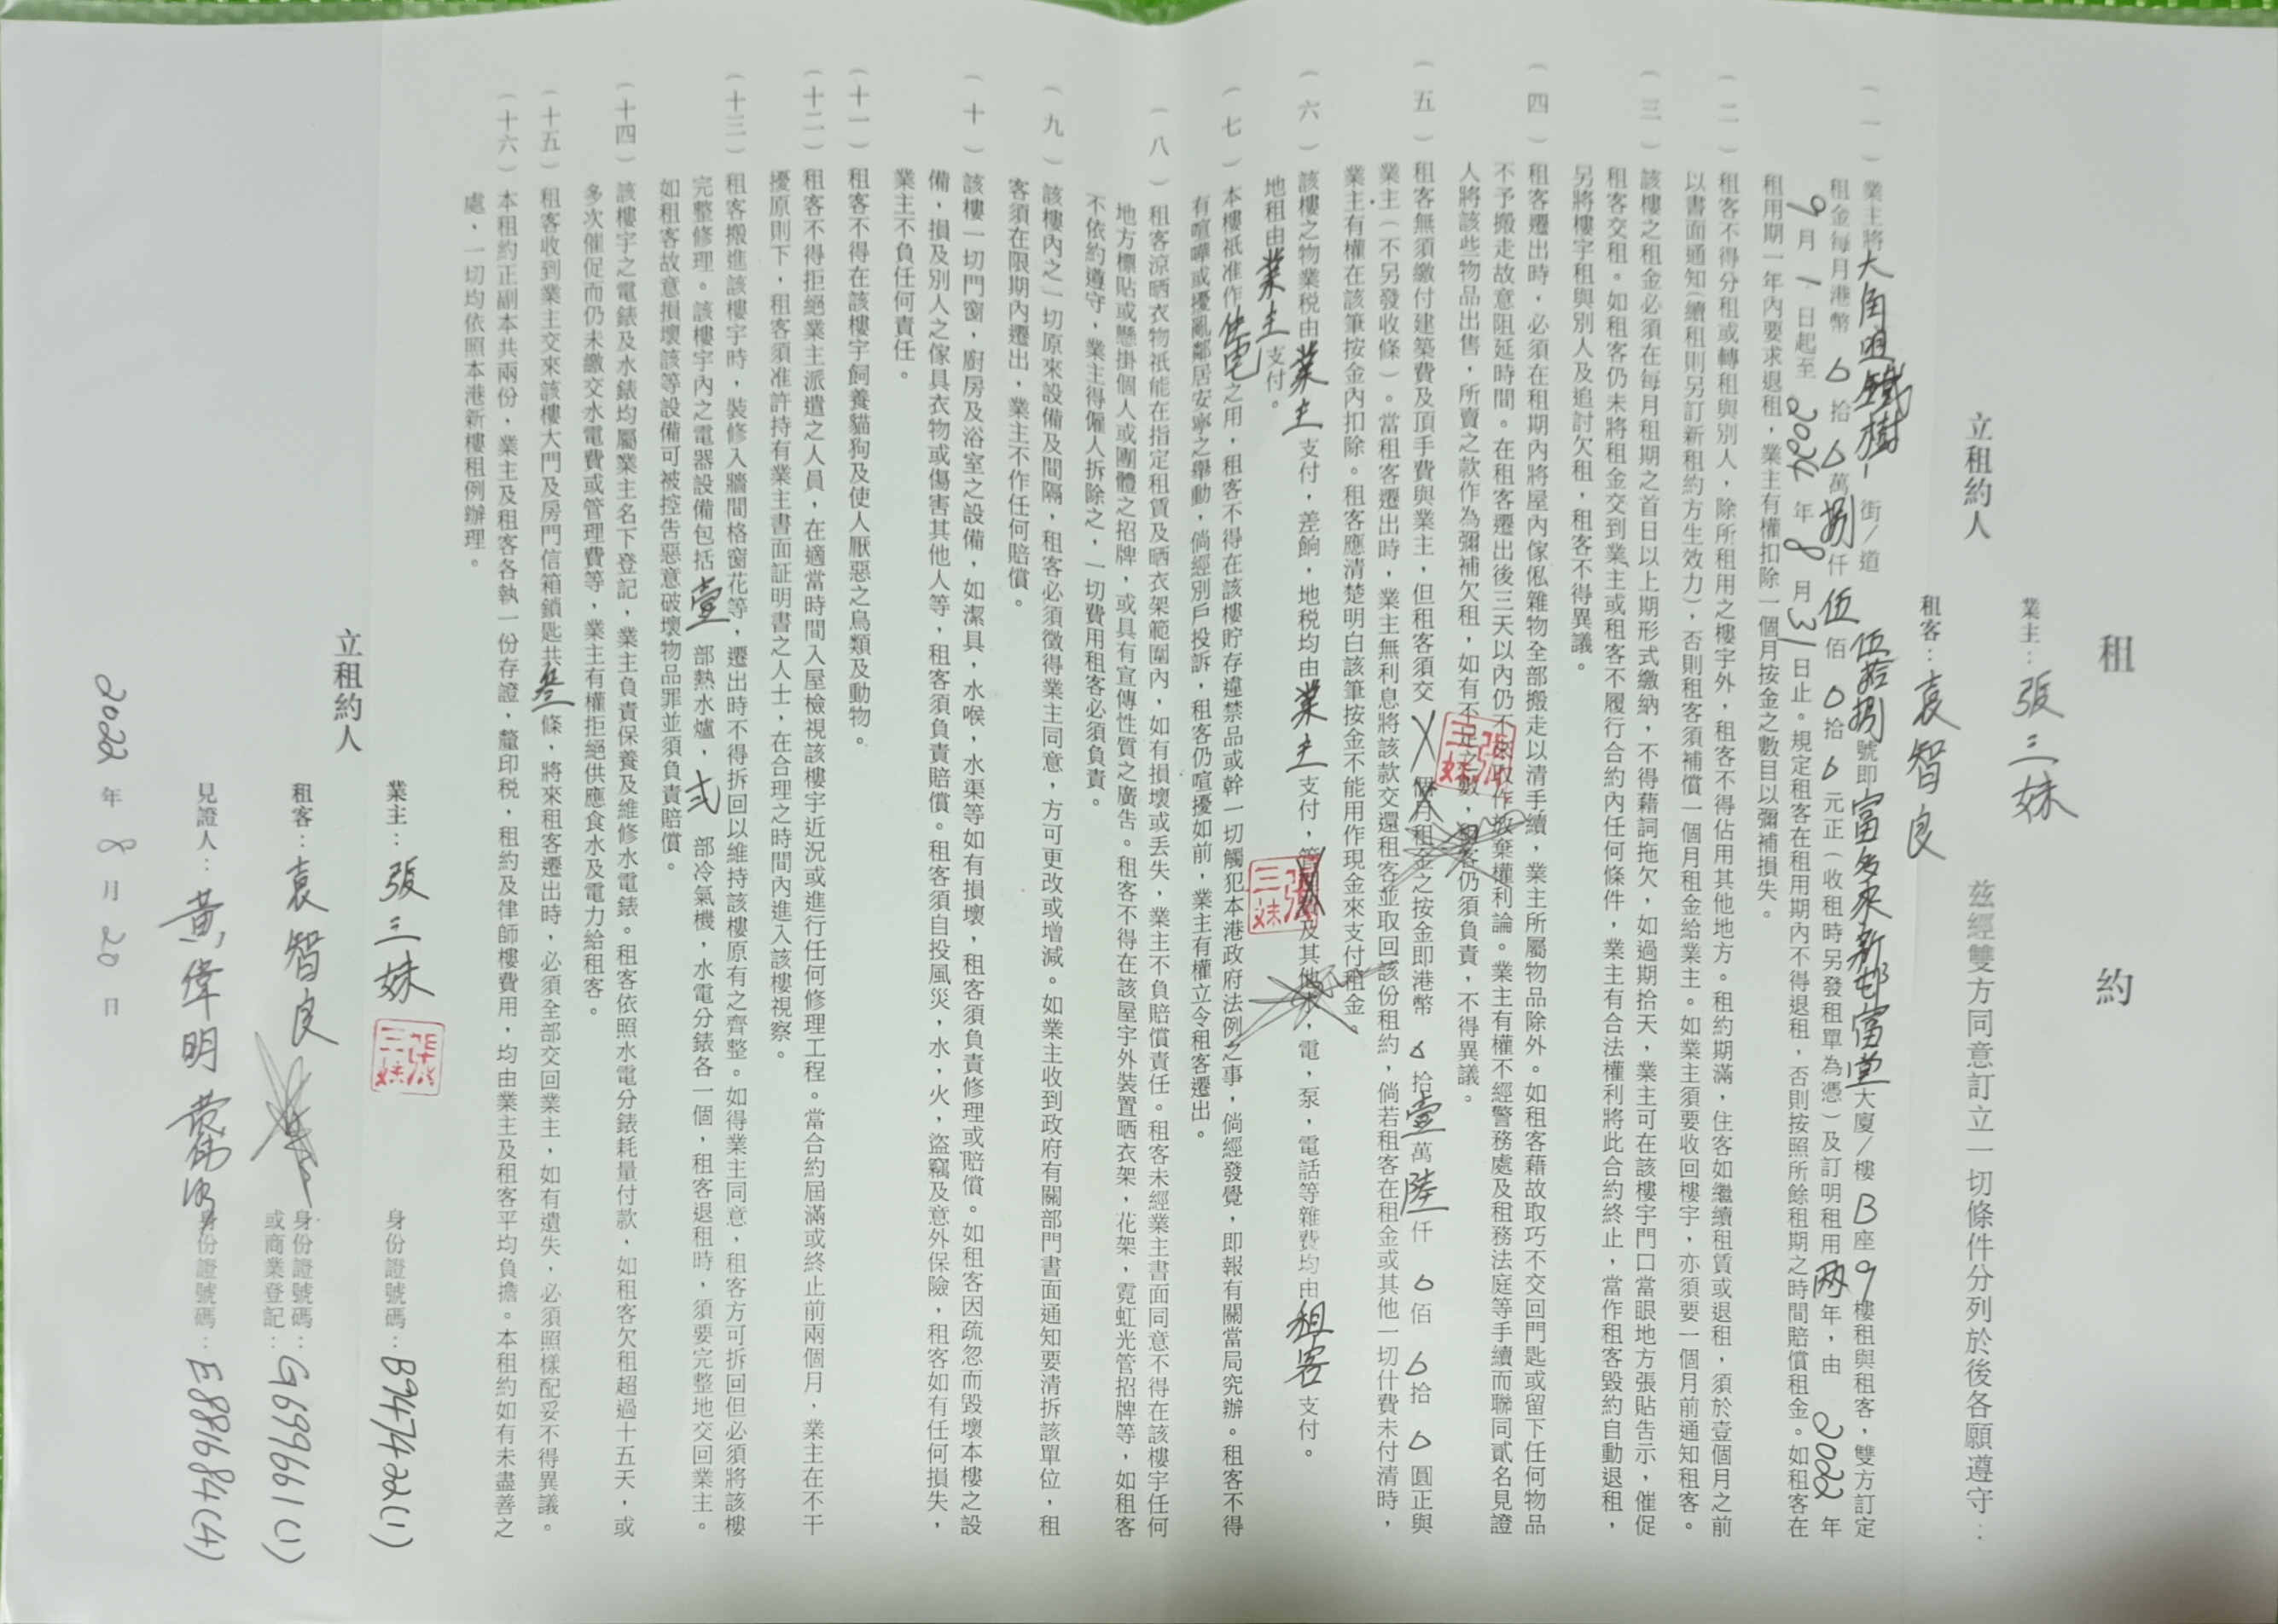 租約
業主：張三妹
立租約人
茲經雙方同意訂立一切條件分列於後各願遵守：
租客：袁智良
（一）業主將大角咀鐵樹街/道伍拾捌號即富多來新邨富堂大廈/樓B座9樓租與租客，雙方訂定
租金每月港幣0拾0萬捌仟伍佰0拾0元正（收租時另發租單為憑）及訂明租用兩年，由2022年
9月1日起至2024年8月31日止。規定租客在租用期內不得退租，否則按照所餘租期之時間賠償租金。如租客在
租用期一年內要求退租，業主有權扣除一個月按金之數目以彌補損失。
（二）租客不得分租或轉租與別人，除所租用之樓宇外，租客不得佔用其他地方。租約期滿，住客如繼續租賃或退租，須於壹個月之前
以書面通知（續租則另訂新租約方生效力），否則租客須補償一個月租金給業主。如業主須要收回樓宇，亦須要一個月前通知租客。
（三）該樓之租金必須在每月租期之首日以上期形式繳納，不得藉詞拖欠，如過期拾天，業主可在該樓宇門口當眼地方張貼告示，催促
租客交租。如租客仍未將租金交到業主或租客不履行合約內任何條件，業主有合法權利將此合約終止，當作租客毀約自動退租，
另將樓宇租與別人及追討欠租，租客不得異議。
（四）租客遷出時，必須在租期內將屋內傢俬雜物全部搬走以清手續，業主所屬物品除外。如租客藉故取巧不交回門匙或留下任何物品
不予搬走故意阻延時間。在租客遷出後三天以內仍不來取作放棄權利論。業主有權不經警務處及租務法庭等手續而聯同貳名見證
人將該些物品出售，所賣之款作為彌補欠租，如有不足之數，租客仍須負責，不得異議。
（五）租客無須繳付建築費及頂手費與業主，但租客須交個月租金之按金即港幣0拾壹萬陸仟0佰0拾0圓正與
業主（不另發收條）。當租客遷出時，業主無利息將該款交還租客並取回該份租約，倘若租客在租金或其他一切什費未付清時，
業主有權在該筆按金內扣除。租客應清楚明白該筆按金不能用作現金來支付租金。
（六）該樓之物業稅由業主支付，差餉，地稅均由業主支付，管理費及其他水，電，泵，電話等雜費均由租客支付。
地租由業主支付。
（七）本樓祇准作住宅之用，租客不得在該樓貯存違禁品或幹一切觸犯本港政府法例之事，倘經發覺，即報有關當局究辦。租客不得
有喧嘩或擾亂鄰居安寧之舉動，倘經別戶投訴，租客仍喧擾如前，業主有權立令租客遷出。
（八）租客涼晒衣物祇能在指定租賃及晒衣架範圍內，如有損壞或丟失，業主不負賠償責任。租客未經業主書面同意不得在該樓宇任何
地方標貼或懸掛個人或團體之招牌，或具有宣傳性質之廣告。租客不得在該屋宇外裝置晒衣架，花架，霓虹光管招牌等，如租客
不依約遵守，業主得僱人拆除之，一切費用租客必須負責。
（九）該樓內之一切原來設備及間隔，租客必須徵得業主同意，方可更改或增減。如業主收到政府有關部門書面通知要清拆該單位，租
客須在限期內遷出，業主不作任何賠償。
（十）該樓一切門窗，廚房及浴室之設備，如潔具，水喉，水渠等如有損壞，租客須負責修理或賠償。如租客因疏忽而毀壞本樓之設
備，損及別人之傢具衣物或傷害其他人等，租客須負責賠償。租客須自投風災，水，火，盜竊及意外保險，租客如有任何損失，
業主不負任何責任。
（十一）租客不得在該樓宇飼養貓狗及使人厭惡之鳥類及動物。
（十二）租客不得拒絕業主派遣之人員，在適當時間入屋檢視該樓宇近況或進行任何修理工程。當合約屆滿或終止前兩個月，業主在不干
擾原則下，租客須准許持有業主書面証明書之人士，在合理之時間內進入該樓視察。
（十三）租客搬進該樓宇時，裝修入牆間格窗花等，遷出時不得拆回以維持該樓原有之齊整。如得業主同意，租客方可拆回但必須將該樓
完整修理。該樓宇內之電器設備包括壹部熱水爐，弍部冷氣機，水電分錶各一個，租客退租時，須要完整地交回業主。
如租客故意損壞該等設備可被控告惡意破壞物品罪並須負責賠償。
（十四）該樓宇之電錶及水錶均屬業主名下登記，業主負責保養及維修水電錶。租客依照水電分錶耗量付款，如租客欠租超過十五天，或
多次催促而仍未繳交水電費或管理費等，業主有權拒絕供應食水及電力給租客。
（十五）租客收到業主交來該樓大門及房門信箱鎖匙共叁條，將來租客遷出時，必須全部交回業主，如有遺失，必須照樣配妥不得異議。
（十六）本租約正副本共兩份，業主及租客各執一份存證，釐印税，租約及律師樓費用，均由業主及租客平均負擔。本租約如有未盡善之
處，一切均依照本港新樓租例辦理。
業主：張三妹 張三妹 身份證號碼：B947422(1)
立租約人
租客：袁智良 身份證號碼：G699661(1)
或商業登記：
見證人：黃偉明 黃偉明 身份證號碼：E881684(4)
2022年8月20日